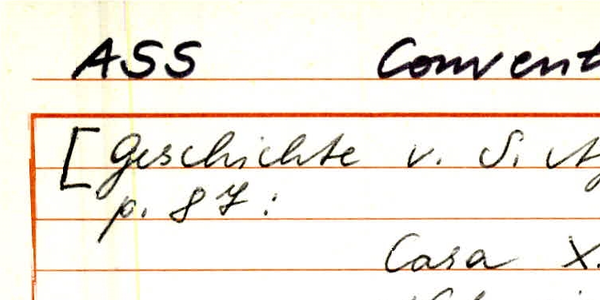 ASS Convent
[Geschichte v. S.
p. 87:
Casa X.